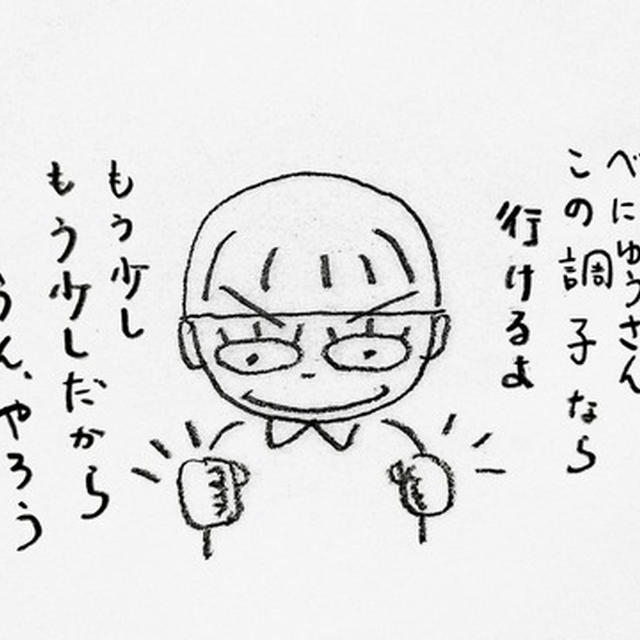 べにゅうさん
この調子なら
行けるよ
もう少し
もう少しだから
うん、やろう